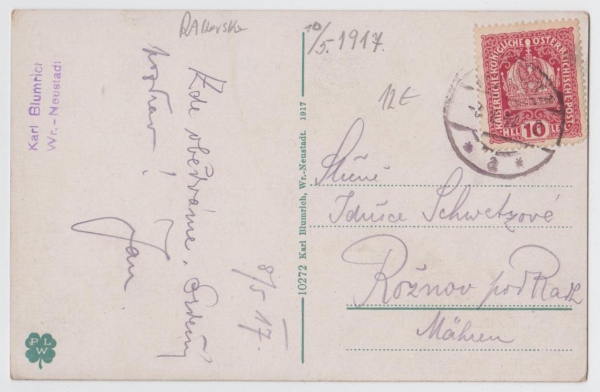 Rakovsko
10/5. 1917.
12 €
Karl Blumrich
Wr.-Neustadt
Kde obědváme. Srdečný
pozdrav!
Jan
8/5 17.
10272 Karl Blumrich, Wr.-Neustadt. 1917
KAISERLICHE KÖNIGLICHE ÖSTERREICHISCHE POST
HELLER
10
* a *
Slečně
Idušce Schwetzové
Rožnov pod Radh.
Mähren
P L W